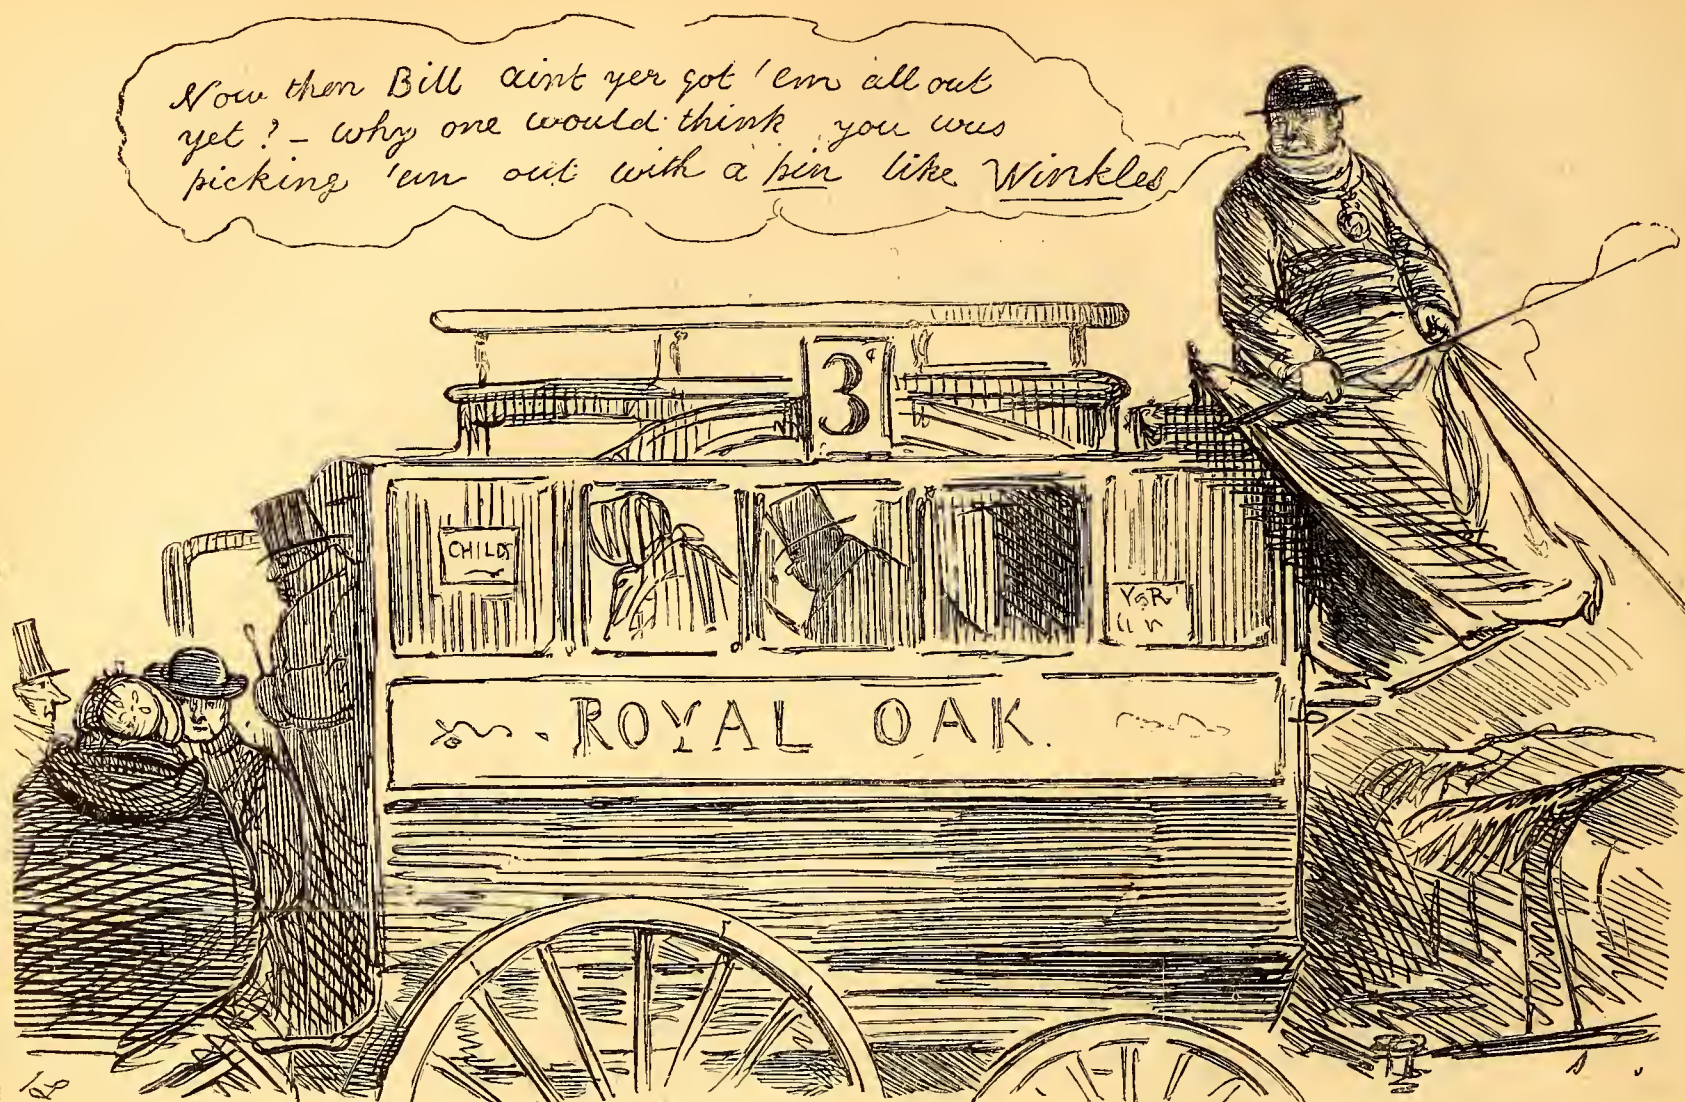 Now then Bill aint yer got 'em all out
yet? - why one would think you was
picking 'em out with a pin like Winkles
3
CHILDS
ROYAL OAK.